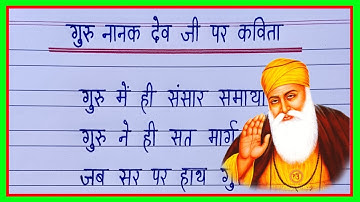 गुरु नानक देव जी पर कविता
गुरु में ही संसार समाया
गुरु ने ही सत मार्ग
जब सर पर हाथ